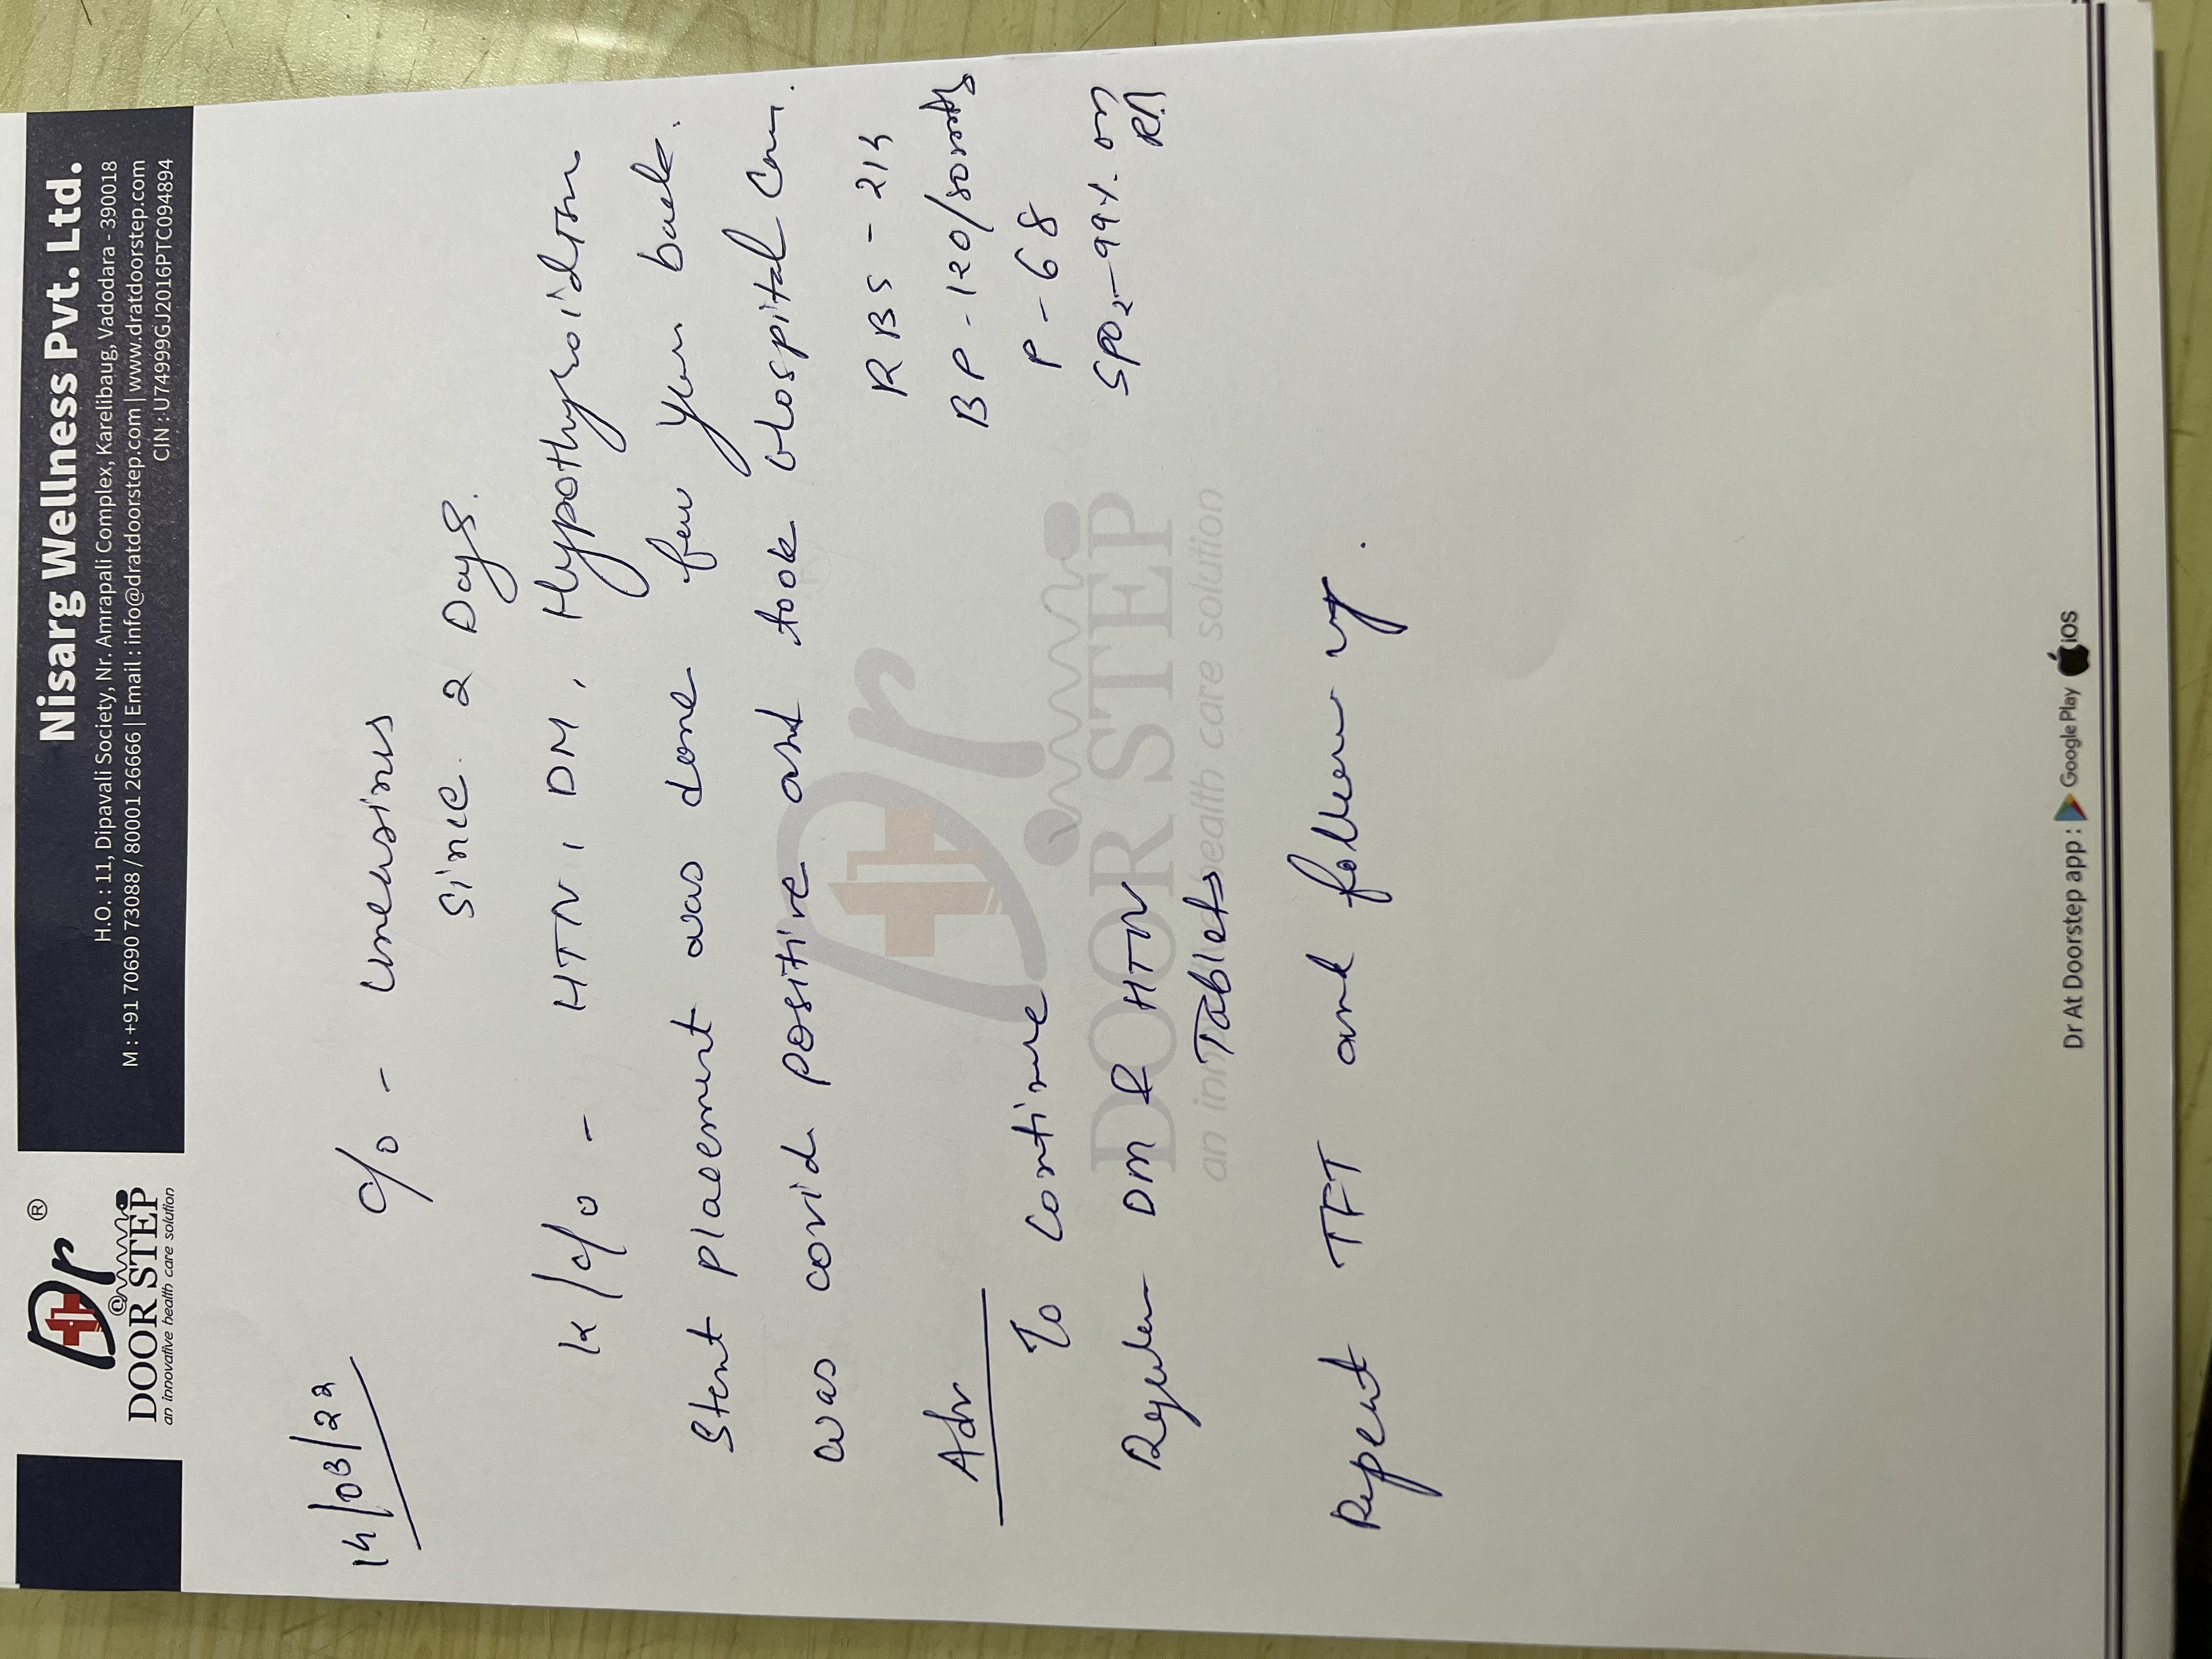 Dr ®
@
DOOR STEP
an innovative health care solution
Nisarg Wellness Pvt. Ltd.
H.O. : 11, Dipavali Society, Nr. Amrapali Complex, Karelibaug, Vadodara - 390018
M : +91 70690 73088 / 80001 26666 | Email : info@dratdoorstep.com | www.dratdoorstep.com
CIN : U74999GJ2016PTC094894
14/03/22
c/o - uneasiness
since 2 Days.
K/c/o - HTN, DM, Hypothyroidism
Stent placement was done few years back.
was covid positive and took Hospital Care.
RBS - 214
Adv
BP - 120/80 mmHg
To continue
P - 68
SPO2 - 99% on
RA
Regular DM & HTN
Tablets
Repeat TFT and follow up.
Dr
DOOR STEP
an innovative health care solution
Dr At Doorstep app : Google Play iOS